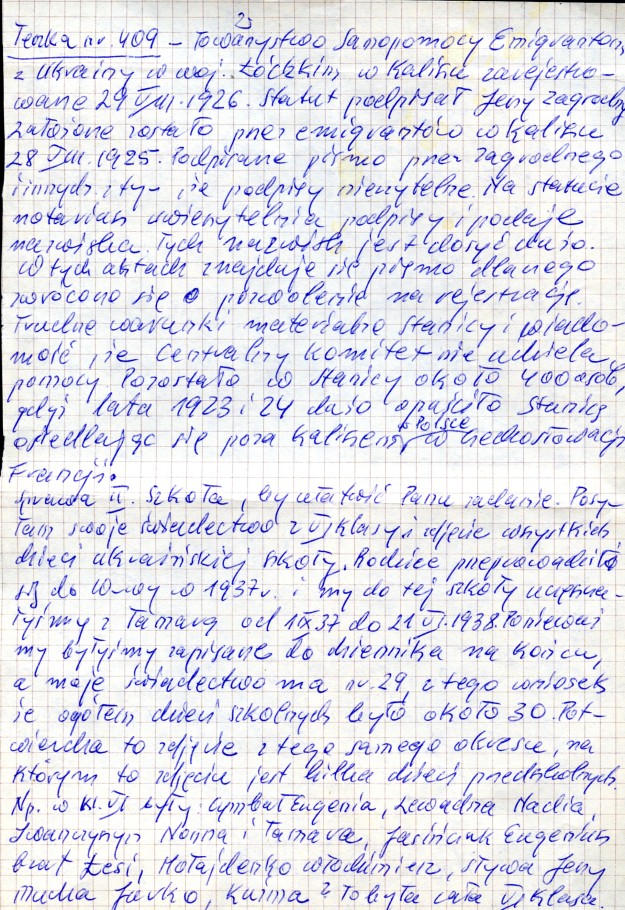 23
Teczka nr. 409 – Towarzystwo Samopomocy Emigrantów
z Ukrainy w woj. Łódzkim w Kaliszu zarejestro-
wane 29 VIII. 1926. Statut podpisał Jerzy Zagrodny
Założone zostało przez emigrantów w Kaliszu
28 VIII. 1925. Podpisane pismo przez Zagrodnego
i innych, z tym że podpisy nieczytelne. Na statucie
notariusz uwierzytelnia podpisy i podaje
nazwiska. Tych nazwisk jest dosyć dużo.
W tych aktach znajduje się pismo dlaczego
zwrócono się o pozwolenie na rejestrację.
Trudne warunki materialne stanicy i wiado-
mość, że Centralny Komitet nie udziela
pomocy. Pozostało w Stanicy około 400 osób,
gdyż lata 1923 i 24 dużo opuściło Stanicę
osiedlając się poza Kaliszem w Polsce w Czechosłowacji
Francji.
Sprawa II. Szkoła, by ułatwić Panu zadanie. Posy-
łam swoje świadectwo z VI klasy i zdjęcie wszystkich
dzieci ukraińskiej szkoły. Rodzice przeprowadzili
się do W-wy w 1937 r. i my do tej szkoły uczęszcza-
łyśmy z Tamarą od 1 IX 37 do 21 VI. 1938. Ponieważ
my byłyśmy zapisane do dziennika na końcu,
a moje świadectwo ma nr. 29, z tego wniosek
że ogółem dzieci szkolnych było około 30. Pot-
wierdza to zdjęcie z tego samego okresu, na
którym to zdjęciu jest kilka dzieci przedszkolnych.
Np. w kl. VI były: Cymbał Eugenia, Lewadna Nadia,
Iwanczyszyn Nonna i Tamara, Eugeniusz
brat Lesi, Hołajdenko Włodzimierz, Jerzy
Mucha Jurko, Kuźma ? To była cała VI klasa.